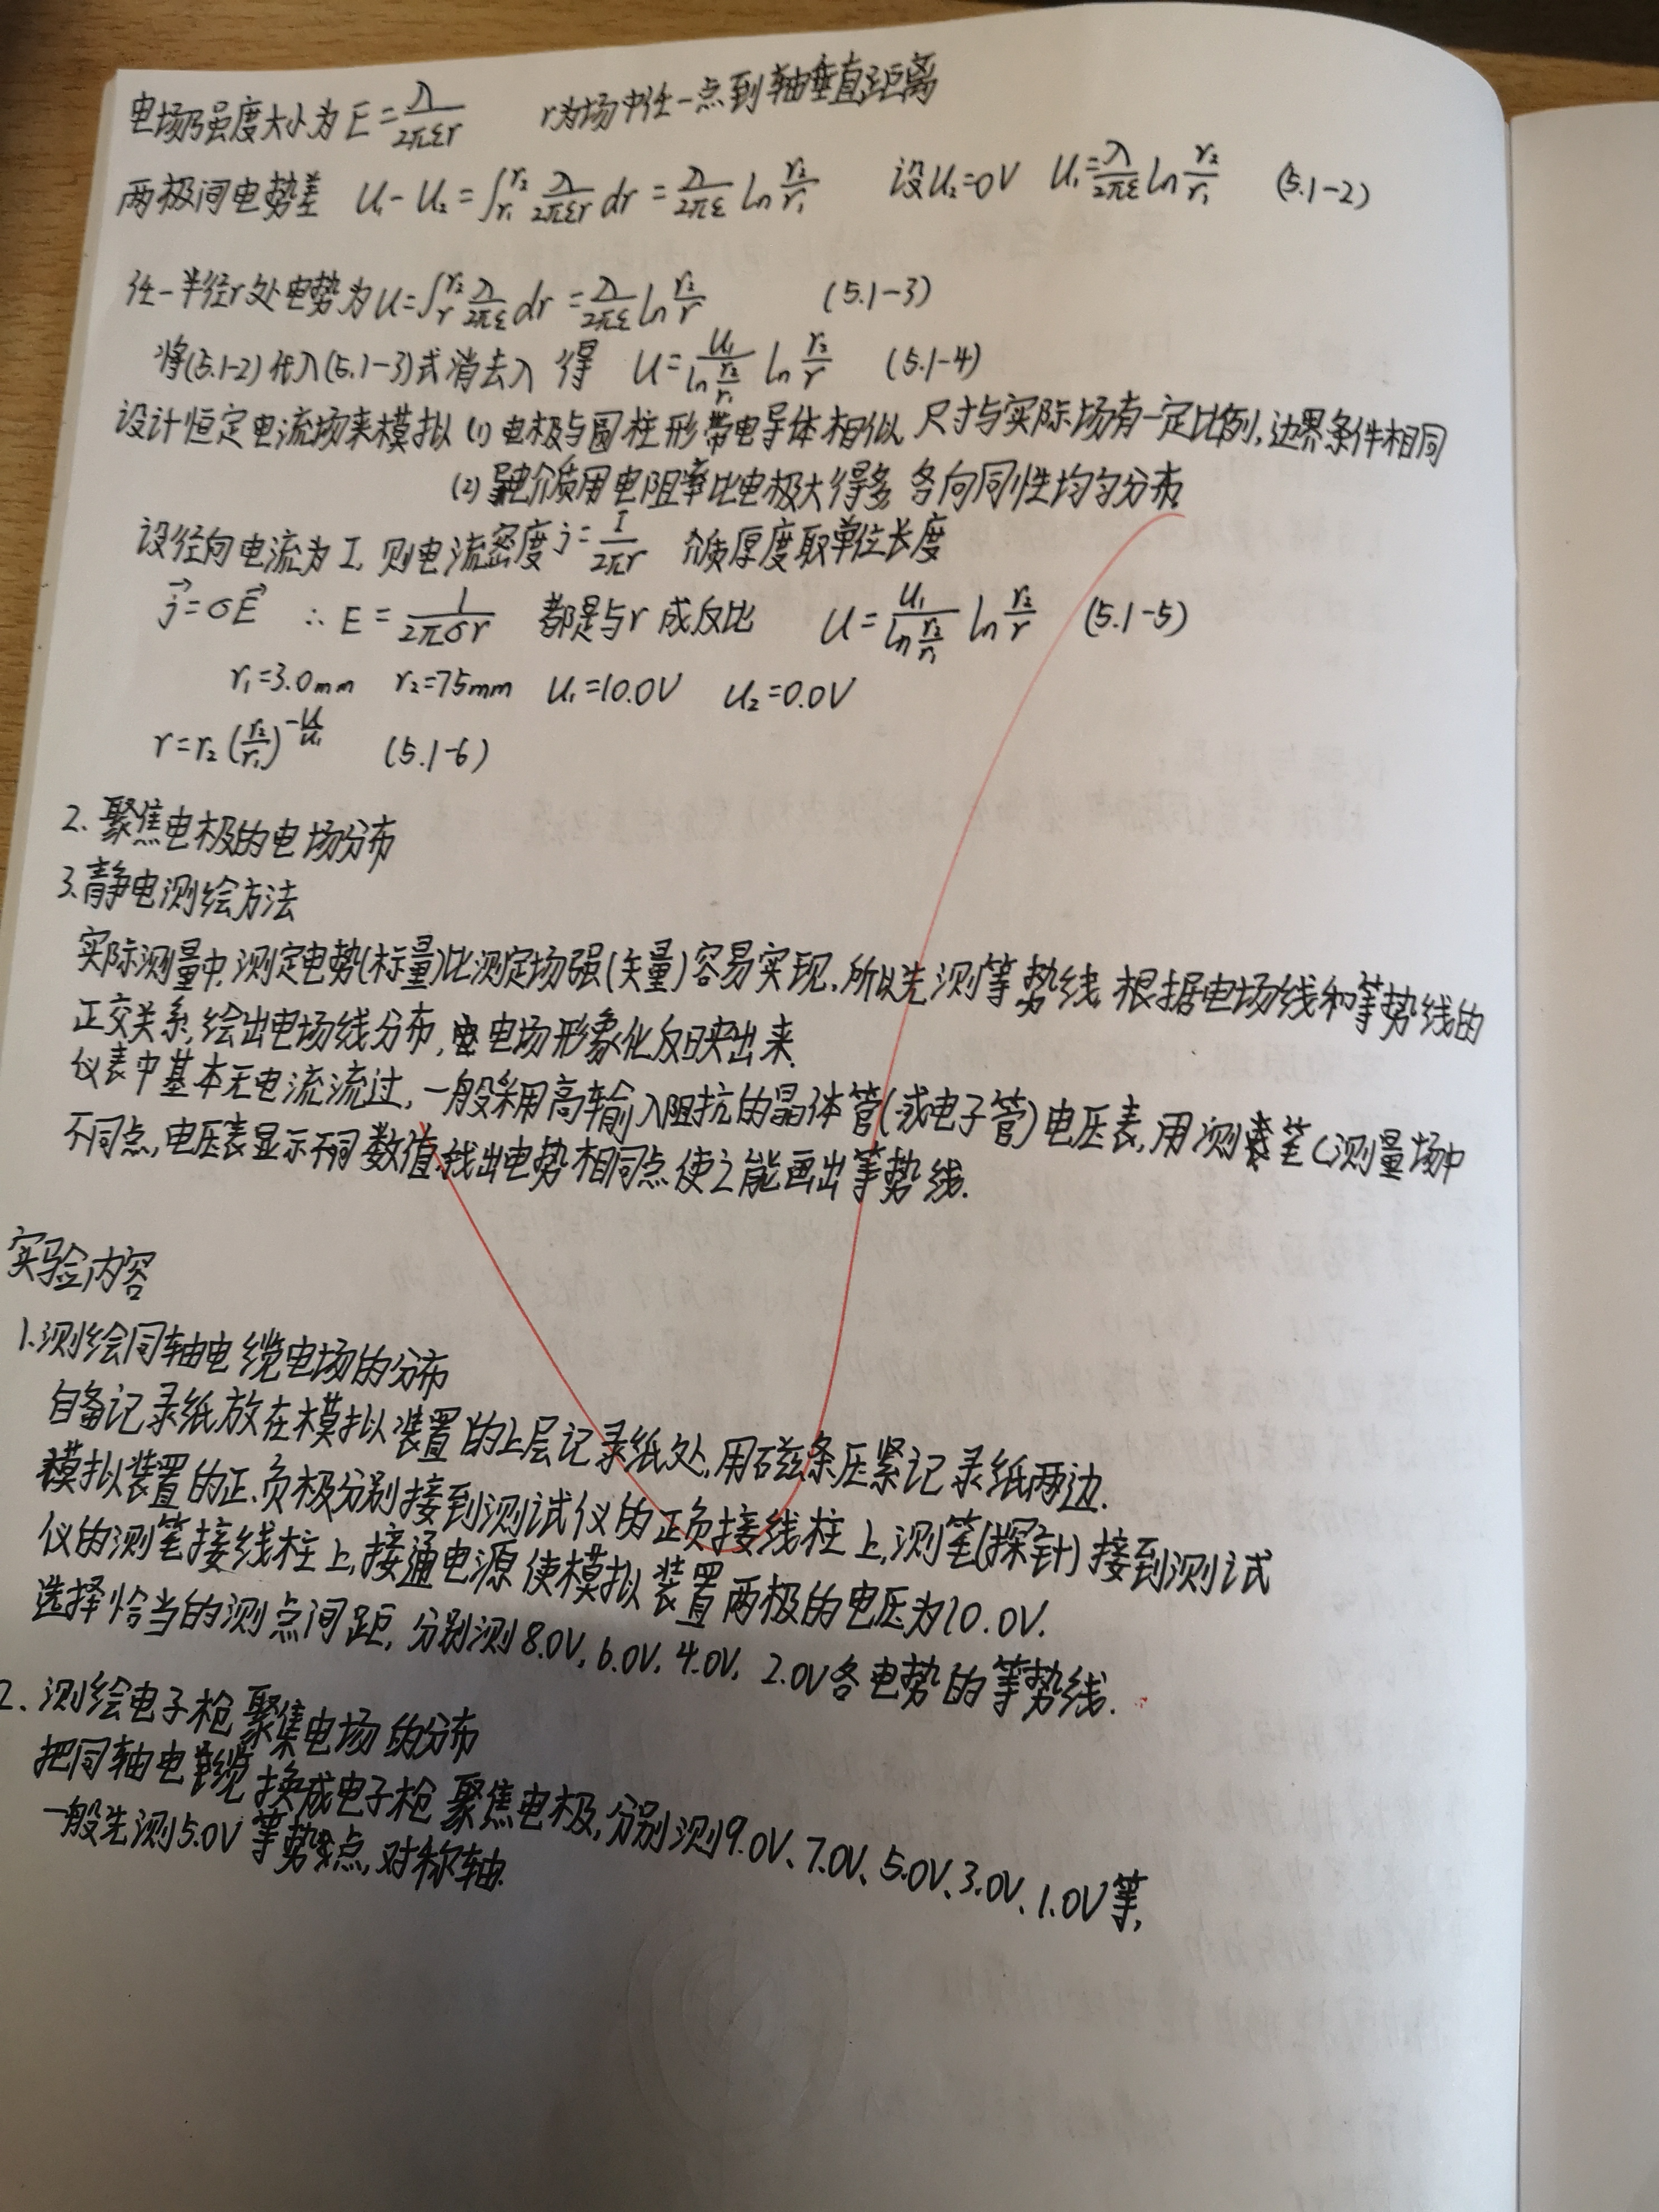 电场强度大小为 E = λ/2πεr  r为场中任一点到轴垂直距离
两极间电势差 U₁-U₂ = ∫_{r₁}^{r₂} λ/2πεr dr = λ/2πε ln r₂/r₁  设U₂=0V  U₁=λ/2πε ln r₂/r₁  (5.1-2)
任一半径r处电势为U=∫_r^{r₂} λ/2πε dr = λ/2πε ln r₂/r  (5.1-3)
将(5.1-2)代入(5.1-3)式消去λ 得 U = U₁/(ln r₂/r₁) ln r₂/r  (5.1-4)
设计恒定电流场来模拟 (1) 电极与圆柱形带电导体相似,尺寸与实际场有一定比例,边界条件相同
(2) 导电介质用电阻率比电极大得多 各向同性均匀分布
设径向电流为I, 则电流密度j=I/2πr  介质厚度取单位长度
j⃗=σE⃗ ∴ E = I/2πσr 都是与r成反比  U = U₁/(ln r₂/r₁) ln r₂/r  (5.1-5)
r₁=3.0mm r₂=75mm U₁=10.0V U₂=0.0V
r=r₂(r₂/r₁)^{-U/U₁}  (5.1-6)
2. 聚焦电极的电场分布
3.静电测绘方法
实际测量中,测定电势(标量)比测定场强(矢量)容易实现,所以先测等势线 根据电场线和等势线的
正交关系,绘出电场线分布, 电场形象化反映出来.
仪表中基本无电流流过,一般采用高输入阻抗的晶体管(或电子管)电压表,用测笔(测量场中
不同点,电压表显示不同数值,找出电势相同点,使之能画出等势线.
实验内容
1.测绘同轴电缆电场的分布
自备记录纸放在模拟装置的上层记录纸处,用磁条压紧记录纸两边.
模拟装置的正、负极分别接到测试仪的正负接线柱上,测笔(探针)接到测试
仪的测笔接线柱上,接通电源,使模拟装置两极的电压为10.0V.
选择恰当的测点间距,分别测8.0V,6.0V,4.0V,2.0V各电势的等势线.
2. 测绘电子枪聚集电场的分布
把同轴电缆换成电子枪聚焦电极,分别测9.0V、7.0V、5.0V、3.0V、1.0V等,
一般先测5.0V等势点,对称轴.